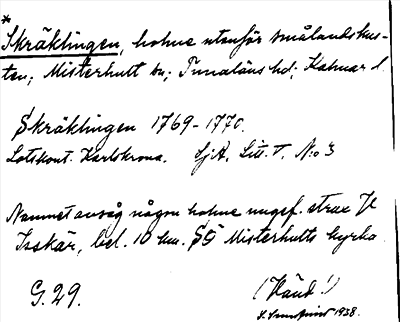 *
Skräklingen, holme utanför smålandskus-
ten; Misterhult sn; Tunaläns hd; Kalmar l.
Skräklingen 1769-1770.
Lotskont. Karlskrona. SjA. Litt. V. N:o 3
Namnet avsåg någon holme ungef. strax N
Isskär, bel. 10 km. SÖ Misterhults kyrka.
G. 29.
(Händ!)
1938.